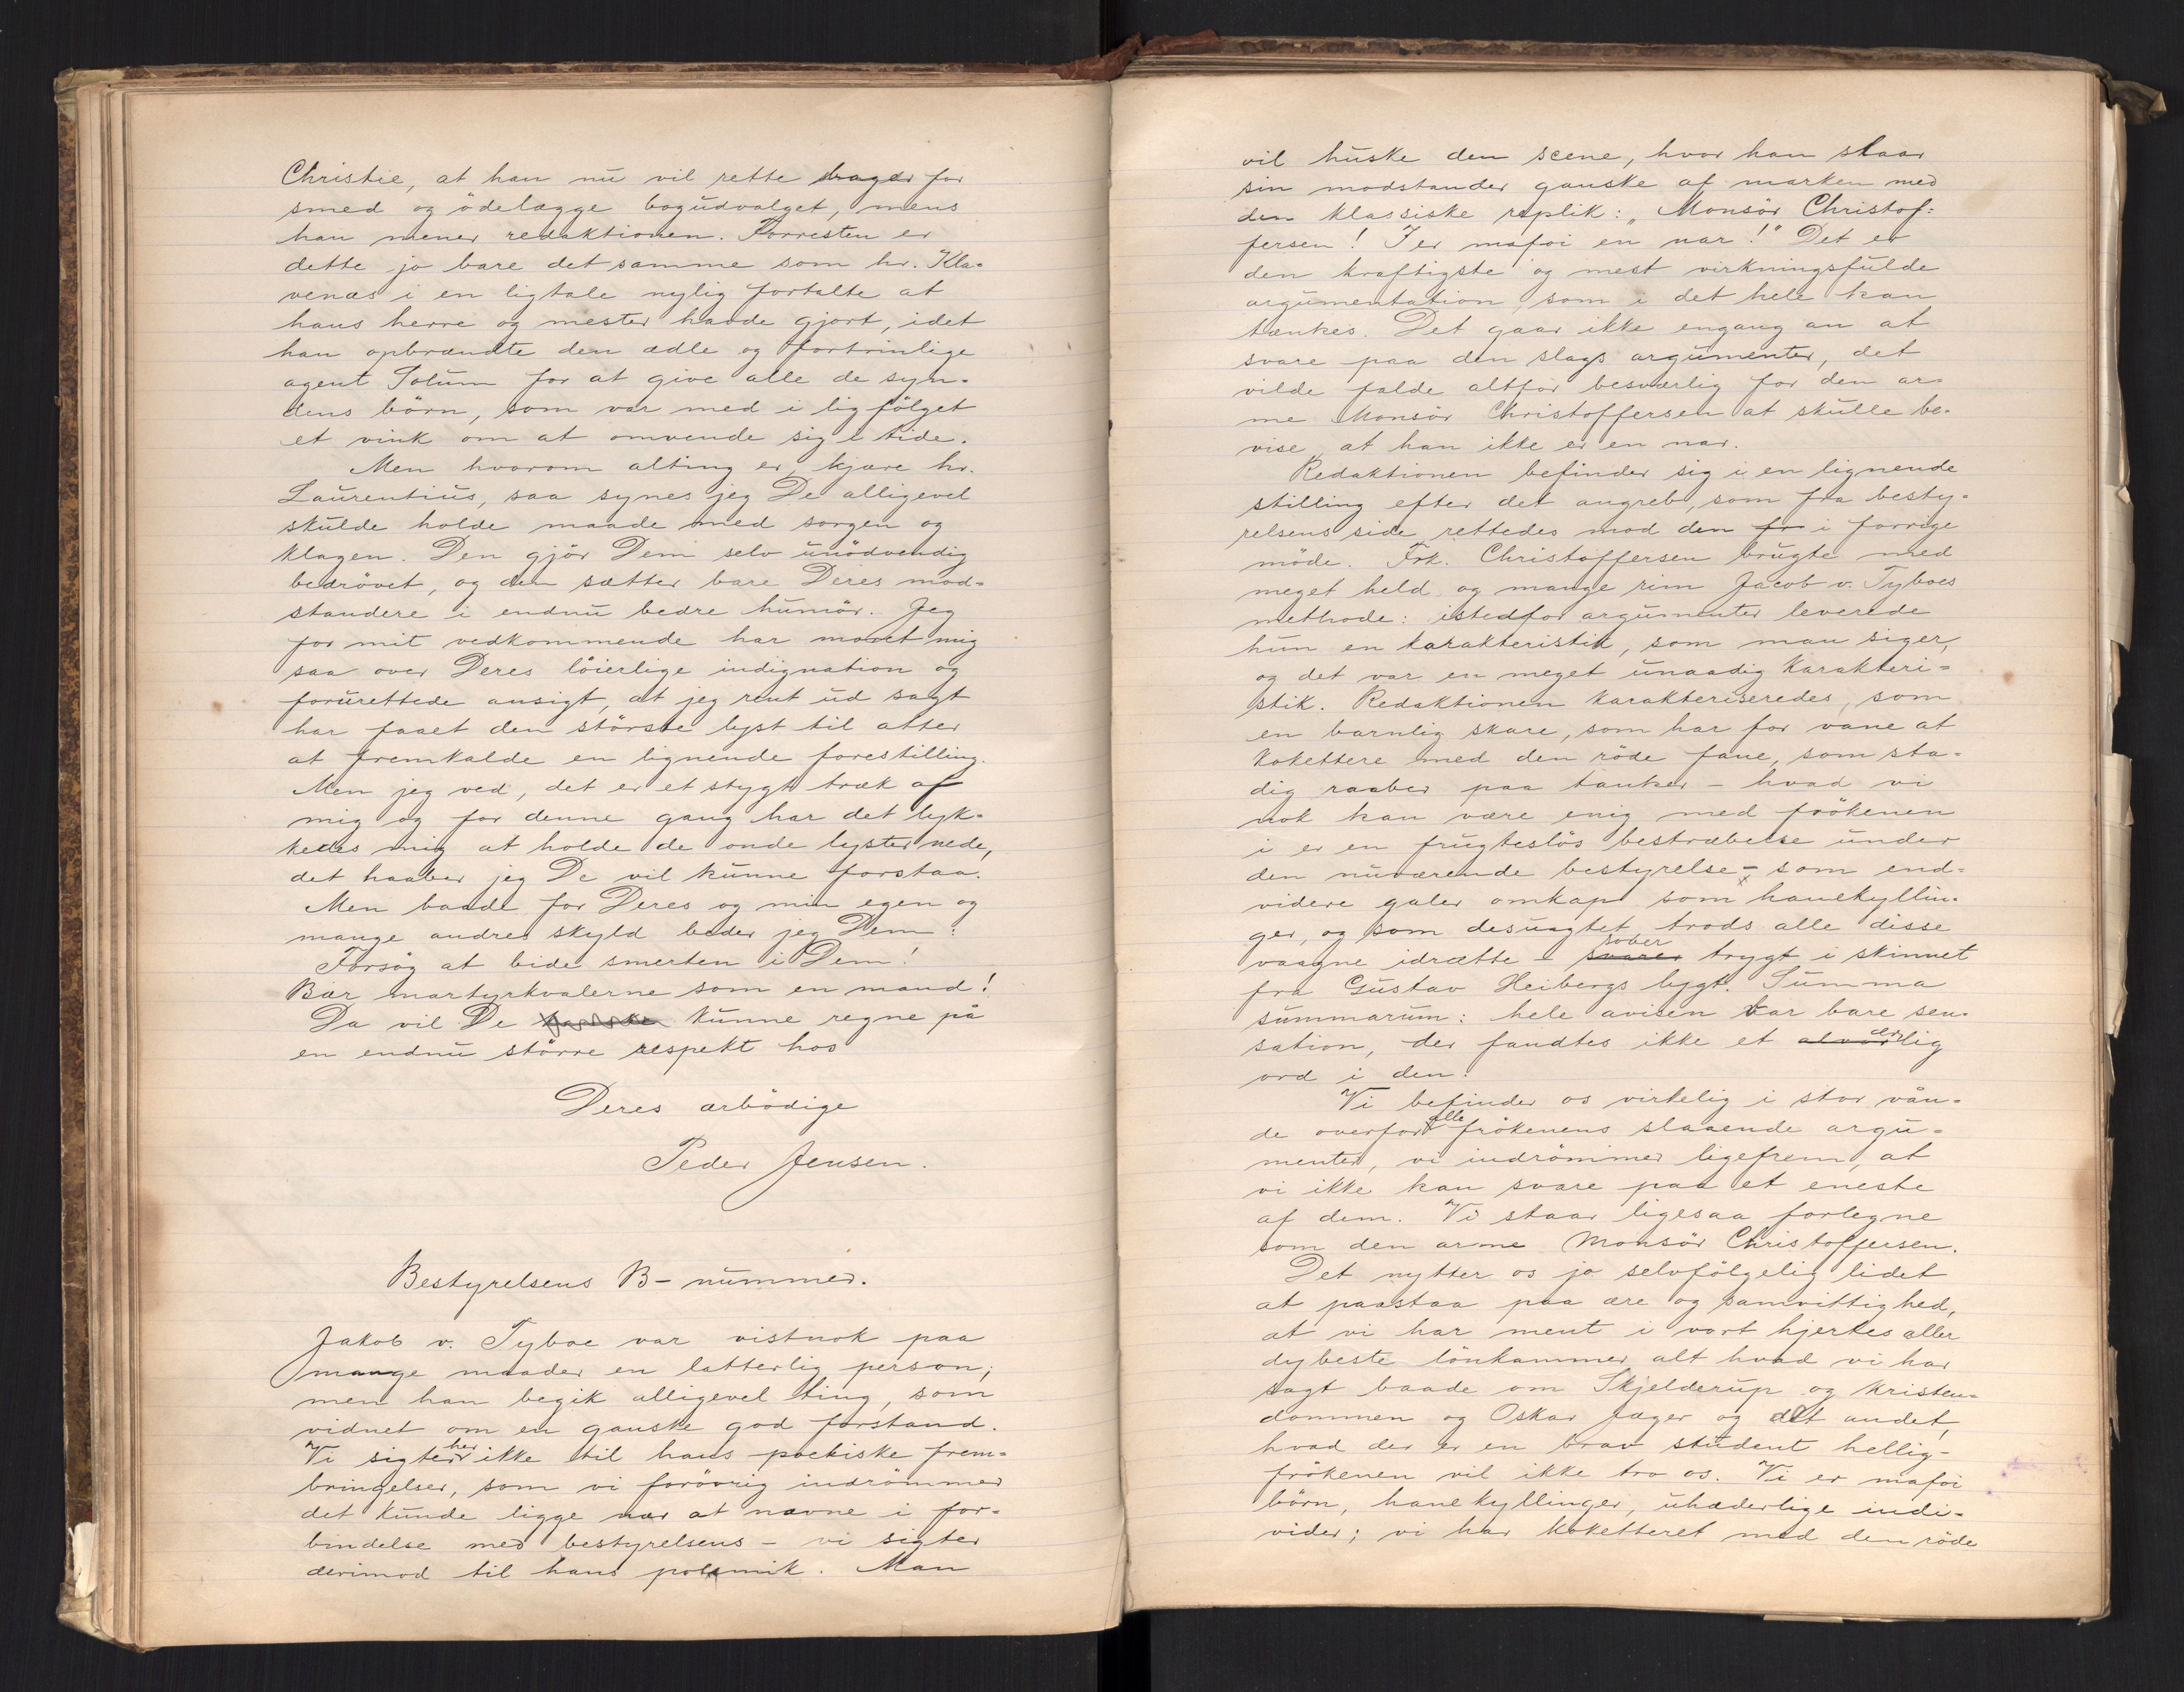 Christie, at han nu vil rette bager for
smed og ödelægge bogudvalget, mens
han mener redaktionen. Forresten er
dette jo bare det samme som hr. Kla-
venæs i en ligtale nylig fortalte at
hans herre og mester havde gjort, idet
han opbrændte den ædle og fortrinlige
agent Solum for at give alle de syn-
dens börn, som var med i ligfölget
et vink om at omvende sig i tide.
Men hvorom alting er, kjære hr.
Laurentius, saa synes jeg De alligevel
skulde holde maade med sorgen og
klagen. Den gjör Dem selv unödvendig
bedrövet, og den sætter bare Deres mod-
standere i endnu bedre humör. Jeg
for mit vedkommende har moret mig
saa over Deres löierlige indignation og
forurettede ansigt, at jeg rent ud sagt
har faaet den störste lyst til atter
at fremkalde en lignende forestilling.
Men jeg ved, det er et stygt træk af
mig og for denne gang har det lyk-
kedes mig at holde de onde lyster nede,
det haaber jeg De vil kunne forstaa.
Men baade for Deres og min egen og
mange andres skyld beder jeg Dem:
Forsög at bide smerten i Dem!
Bær martyrkvalerne som en mand!
Da vil De kunne regne på
en endnu större respekt hos
Deres ærbödige
Peder Jensen.
Bestyrelsens B-nummer.
Jakob v. Tyboe var vistnok paa
mange maader en latterlig person;
men han begik alligevel ting, som
vidnet om en ganske god forstand.
Vi sigter her ikke til hans poetiske frem-
bringelser, som vi forövrig indrömmer
det kunde ligge nær at nævne i for-
bindelse med bestyrelsens - vi sigter
derimod til hans polemik. Man
vil huske den scene, hvor han slaar
sin modstander ganske af marken med
den klassiske replik: "Monsör Christof-
fersen! I er mafoi en nar!" Det er
den kraftigste og mest virkningsfulde
argumentation, som i det hele kan
tænkes. Det gaar ikke engang an at
svare paa den slags argumenter, det
vilde falde altfor besværlig for den ar-
me Monsör Christoffersen at skulle be-
vise, at han ikke er en nar.
Redaktionen befinder sig i en lignende
stilling efter det angreb, som fra besty-
relsens side rettedes mod den fo i forrige
möde. Frk. Christoffersen brugte med
meget held og mange rim Jacob v. Tyboes
methode: istedfor argumenter leverede
hun en karakteristik, som man siger,
og det var en meget unaadig karakteri-
stik. Redaktionen karakteriseredes, som
en barnlig skare, som har for vane at
kokettere med den röde fane, som sta-
dig raaber paa tanker - hvad vi
nok kan være enig med frökenen
i er en frugteslös bestræbelse under
den nuværende bestyrelse - som end-
videre galer omkap som hanekyllin-
ger, og som desuagtet trods alle disse
vaagne idrætte - svarer sover trygt i skinnet
fra Gustav Heibergs lygt. Summa
summarum: hele avisen var bare sen-
sation, der fandtes ikke et alvorlig ærlig
ord i den!
Vi befinder os virkelig i stor vån-
de overfor alle frökenens slaaende argu-
menter, vi indrömmer ligefrem, at
vi ikke kan svare paa et eneste
af dem. Vi staar ligesaa forlegne
som den arme Monsör Christoffersen.
Det nytter os jo selvfölgelig lidet
at paastaa paa ære og samvittighed,
at vi har ment i vort hjertes aller
dybeste lönkammer alt hvad vi har
sagt baade om Skjelderup og kristen-
dommen og Oskar Jæger og alt andet,
hvad der er en brav student hellig -
frökenen vil ikke tro os. Vi er mafoi
börn, hanekyllinger, uhæderlige indi-
vider; vi har koketteret med den röde